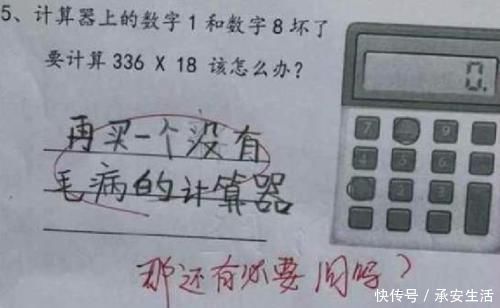 5、计算器上的数字1和数字8坏了
要计算336 X 18 该怎么办?
0.
再买一个没有
毛病的计算器
那还有必要问吗?
7
9
4
5
6
2
3
快传号/承安生活